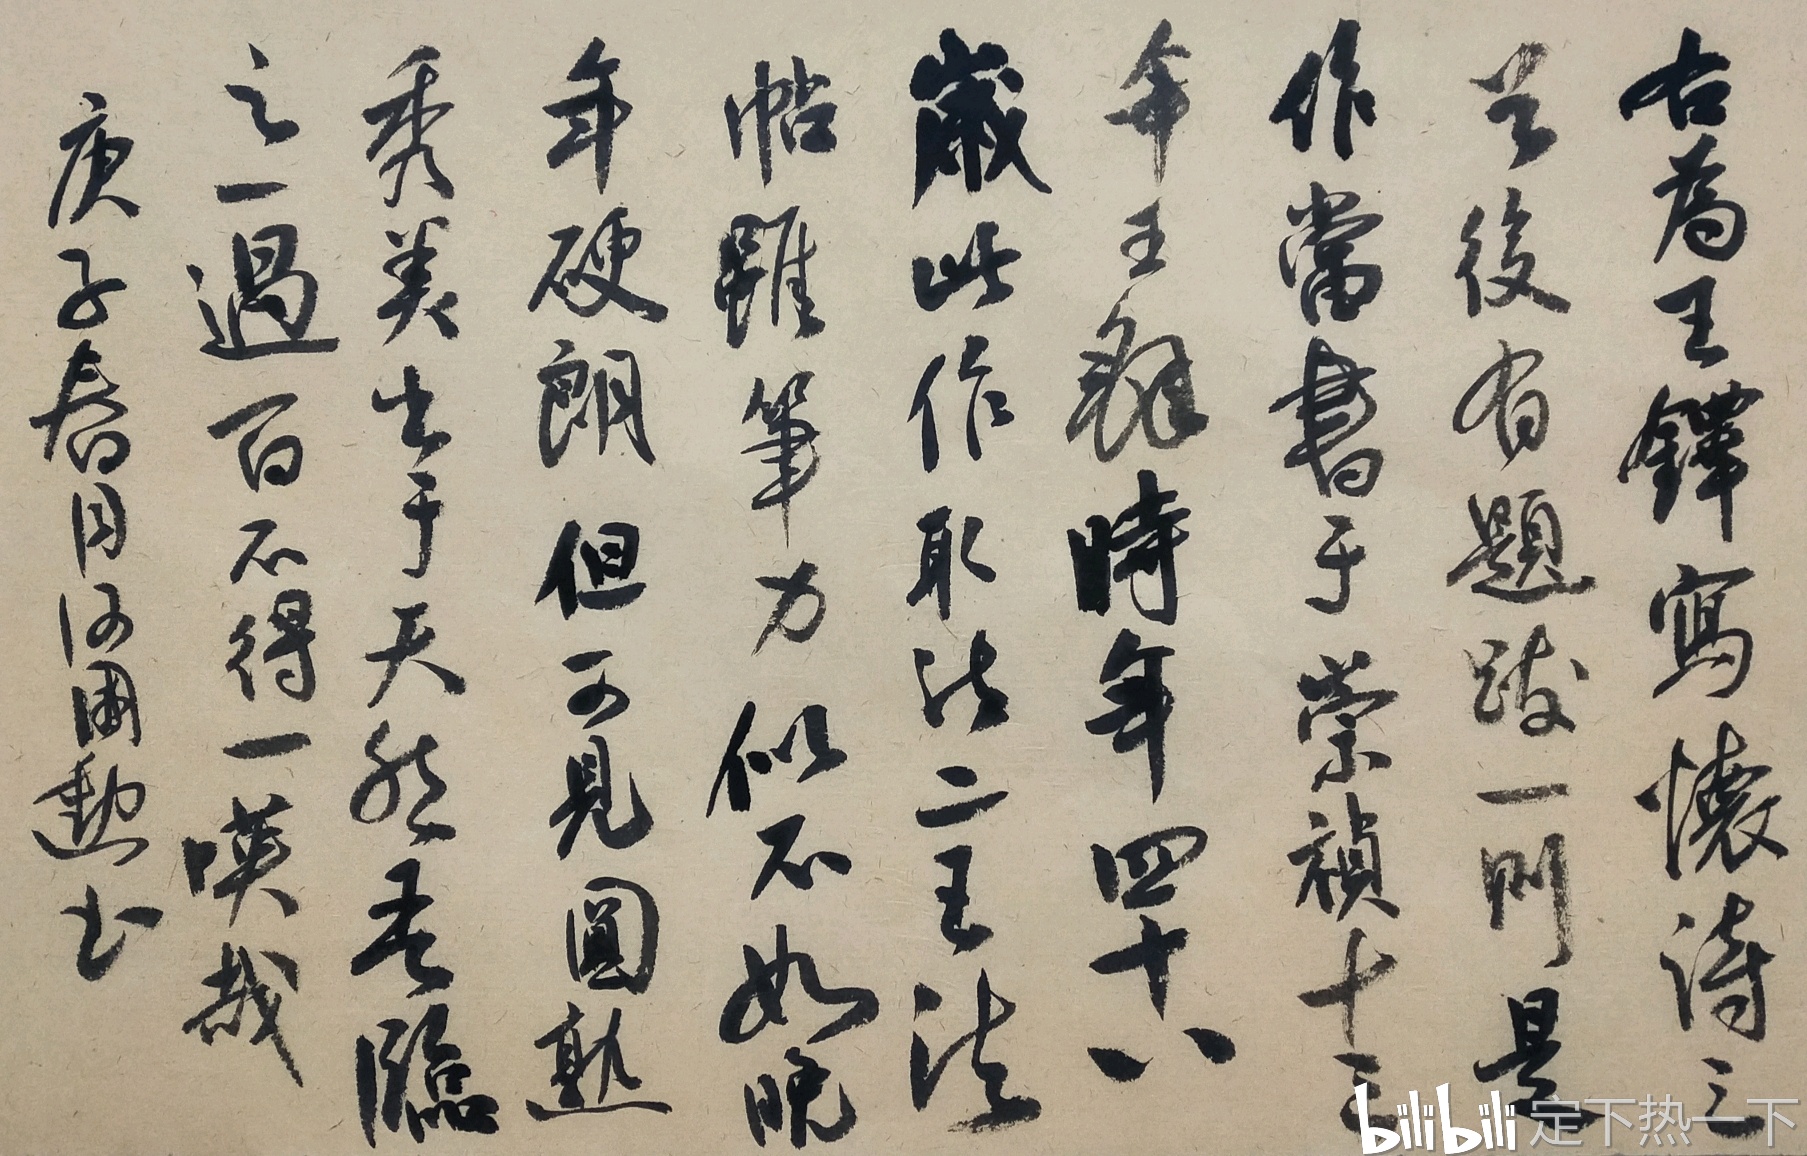 右為王鐸寫懷詩三
首後有題跋一則是
作當書于崇禎十三
年王鐸時年四十八
歲此作取法二王法
帖雖筆力似不如晚
年硬朗但可見圓熟
秀美出于天然吾臨
之一過百不得一嘆哉
庚子春月勳书
bilibili 定下热一下